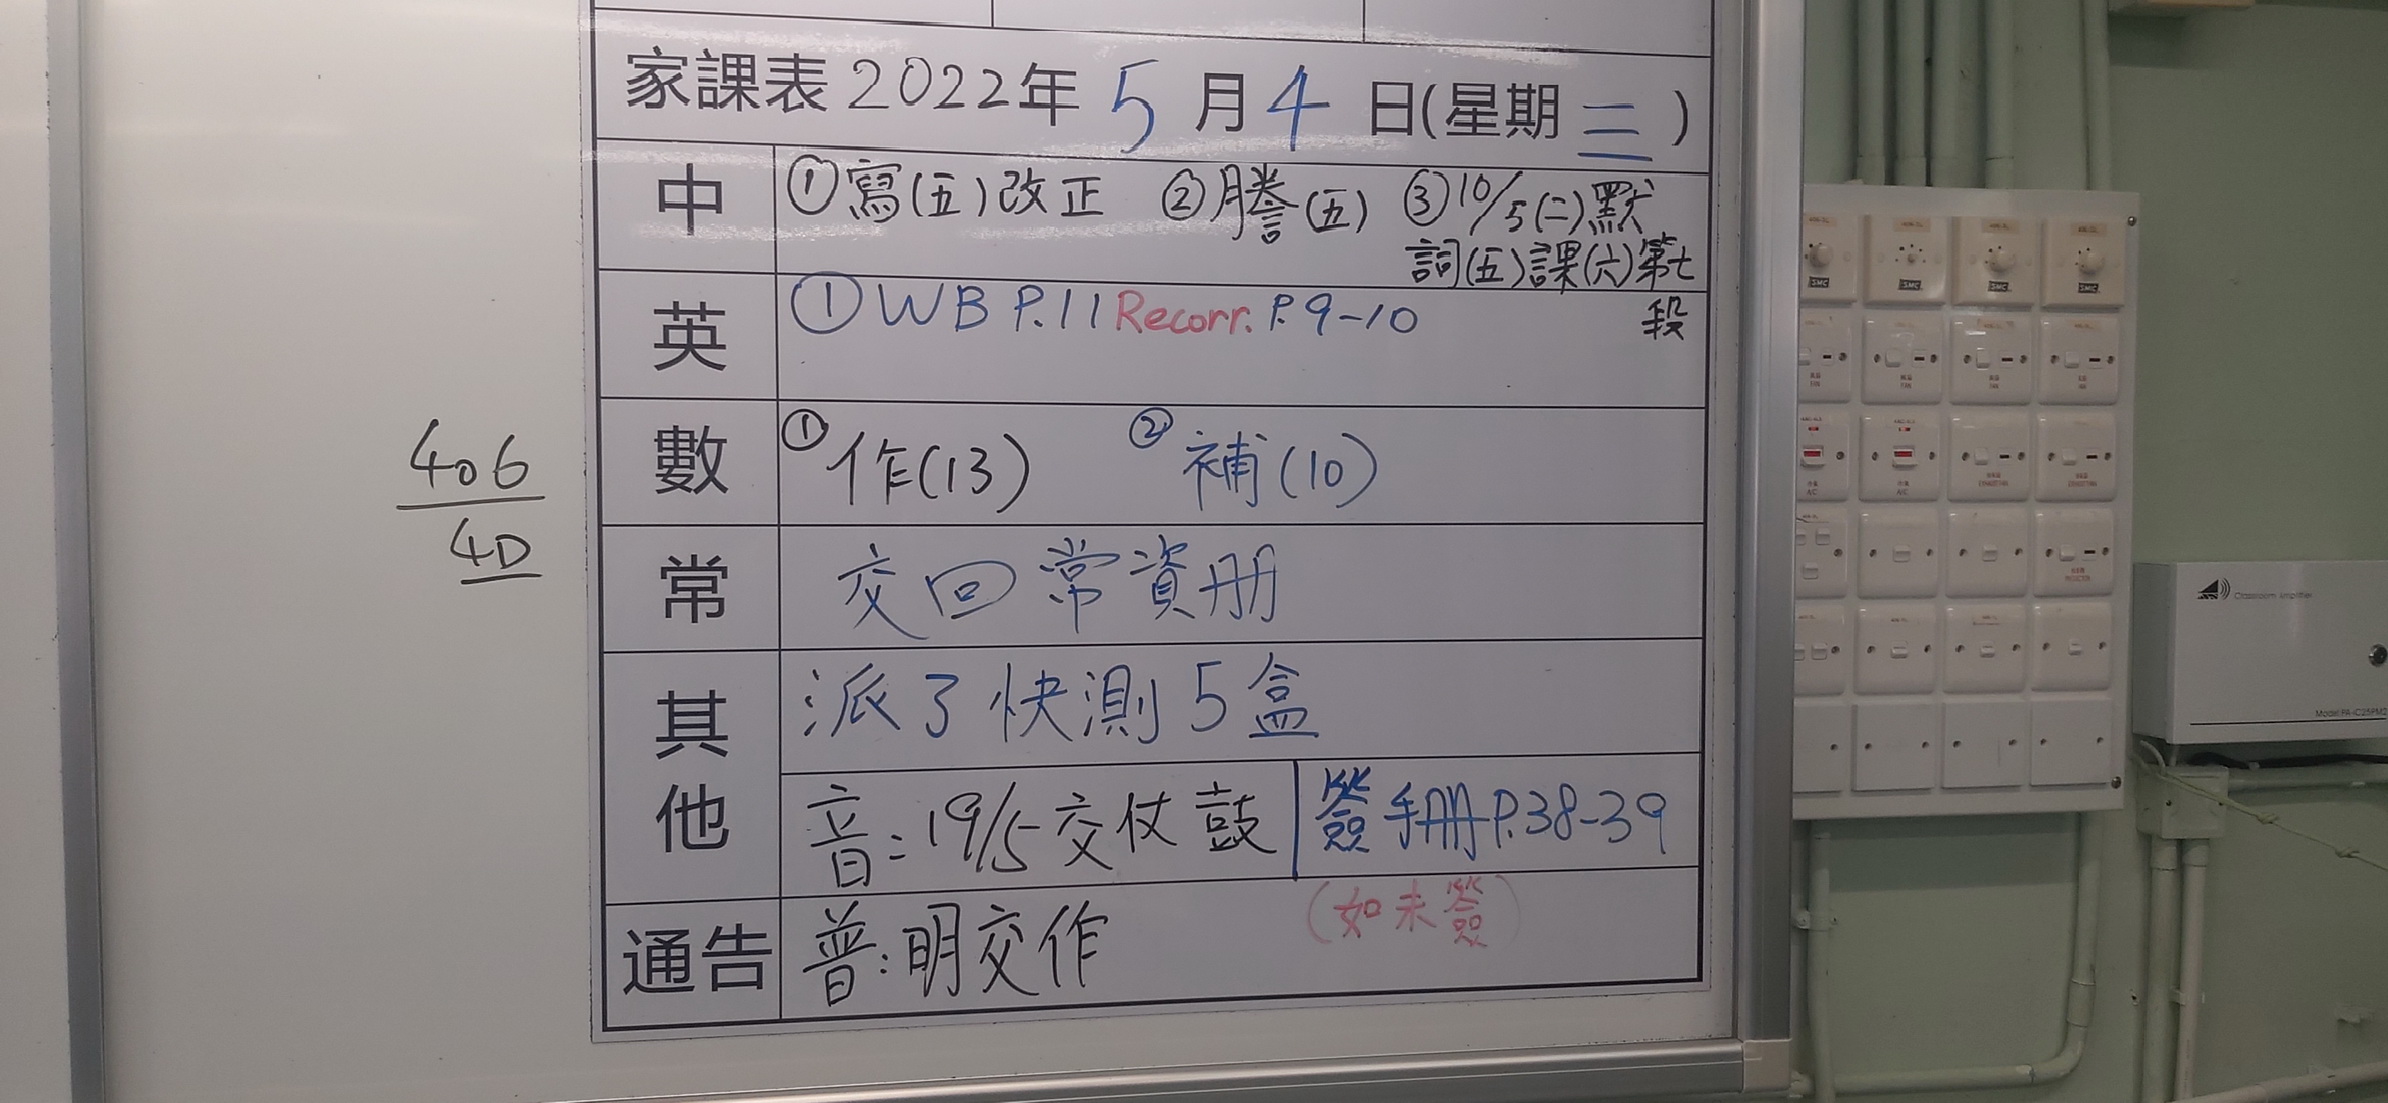 家課表 2022年 5 月 4 日(星期 三 )
中 ①寫(五)改正 ②謄(五) ③10/5(二)默
詞(五)課(六)第七
段
英 ①WB P.11 Recorr. P.9-10
數 ①作(13) ②補(10)
常 交回常資册
其他 派了快測5盒
音:19/5交仗鼓 簽手册P.38-39
(如未簽)
通告 普:明交作
406
4D
SMC
SMC
SMC
SMC
Classroom Amplifier
Model:PA-IC25PM2